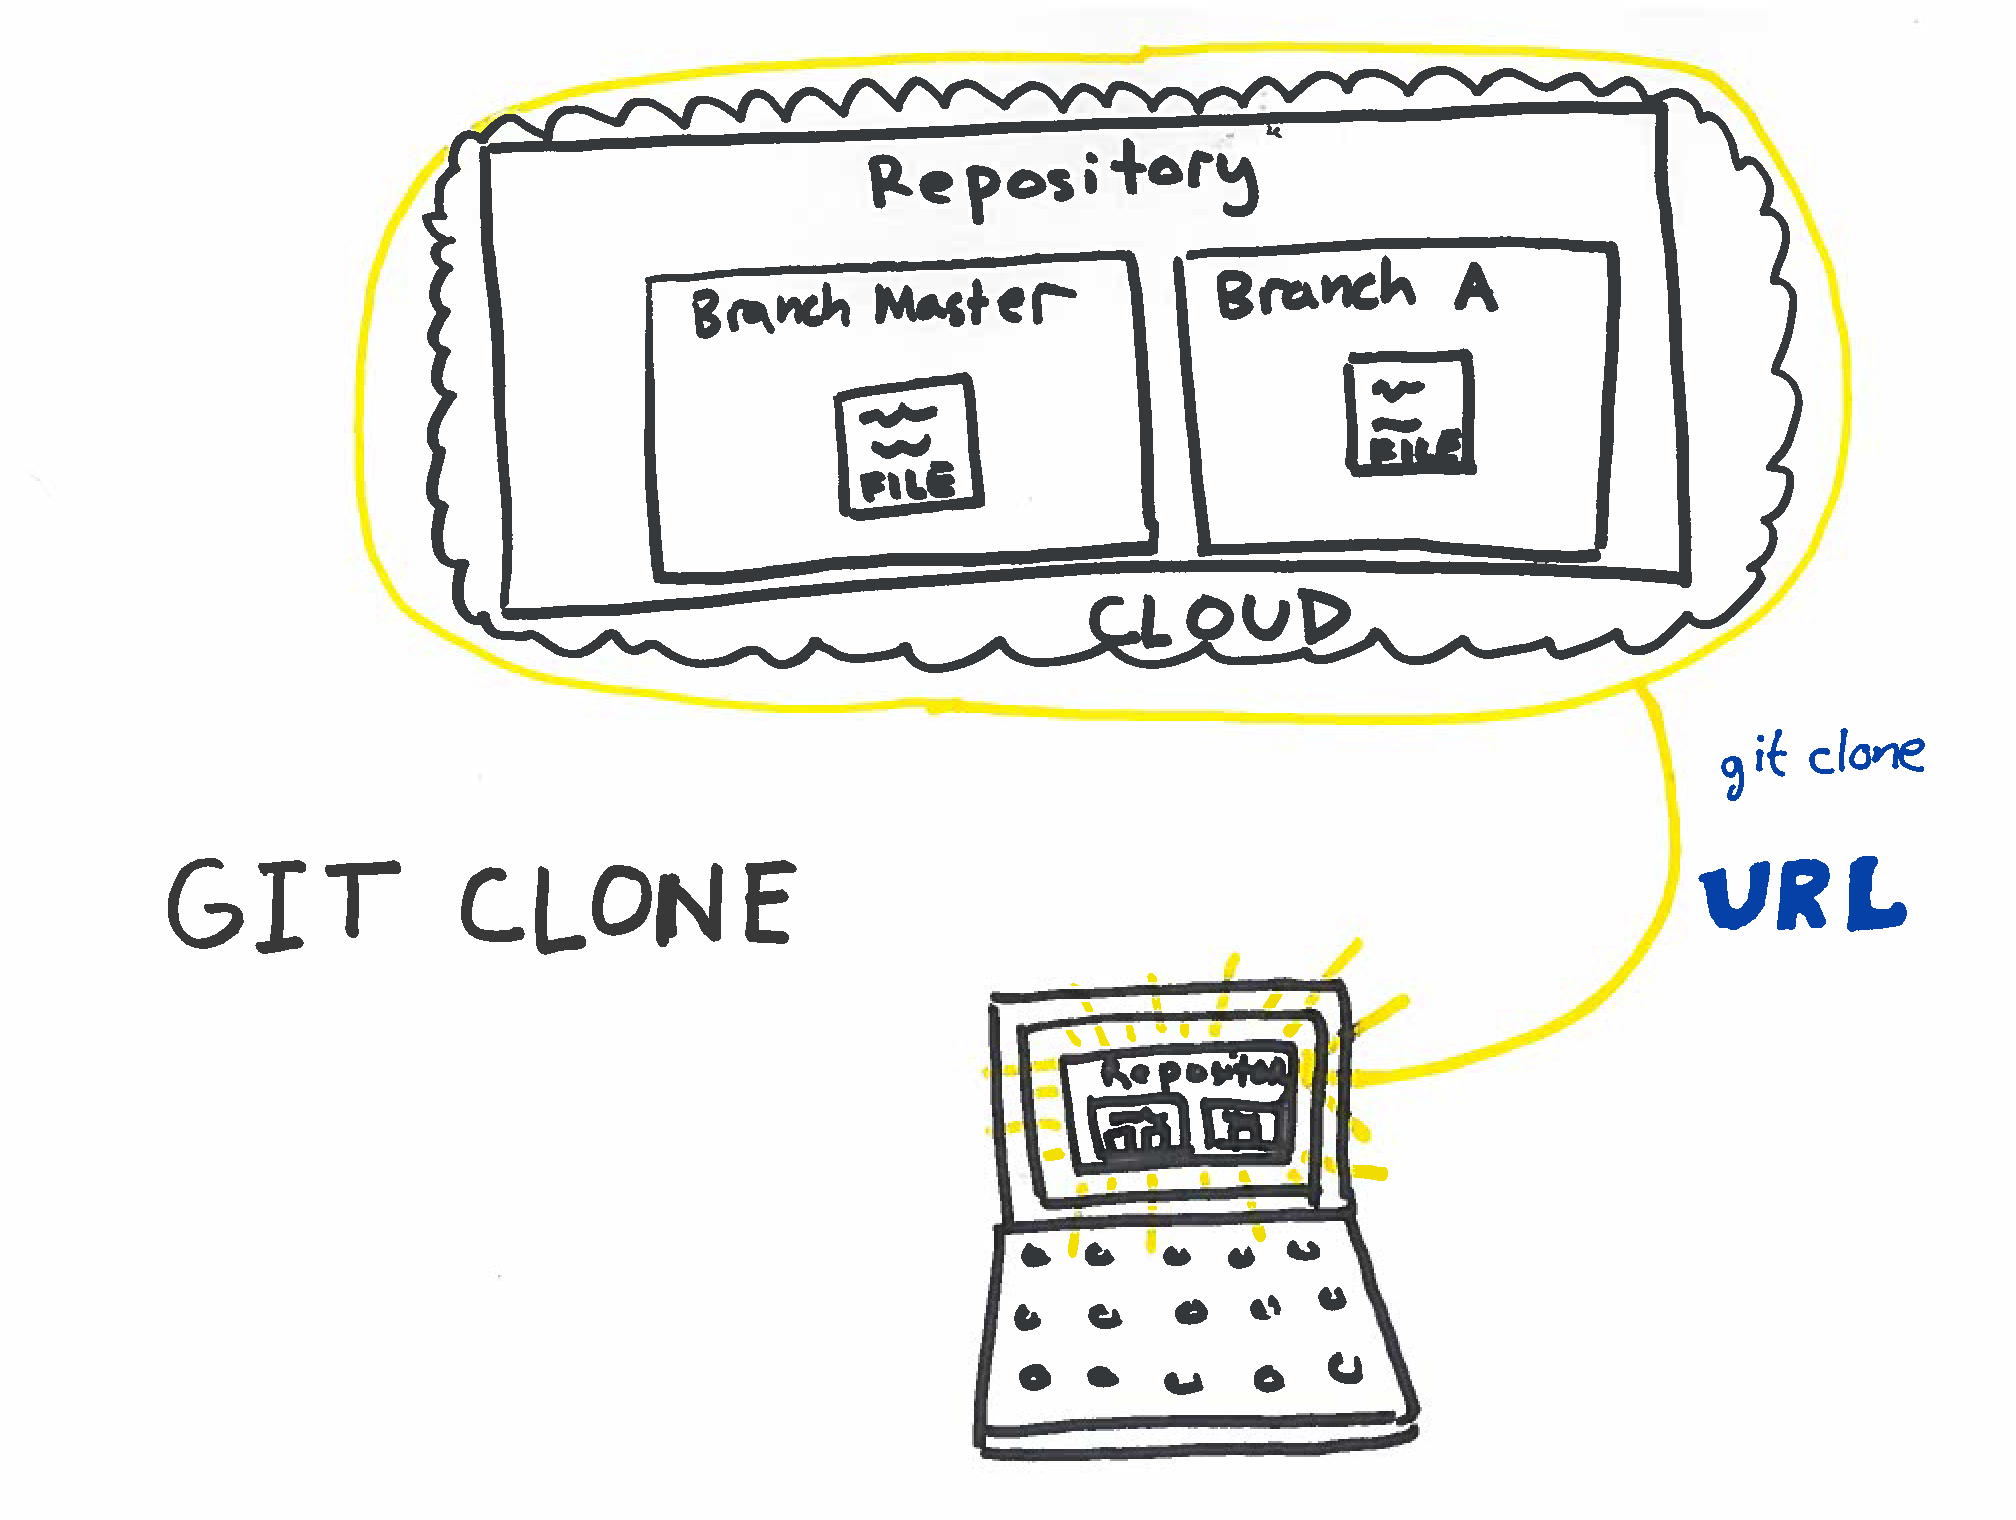 Repository
Branch Master
Branch A
FILE
FILE
CLOUD
git clone
URL
GIT CLONE
Repositor